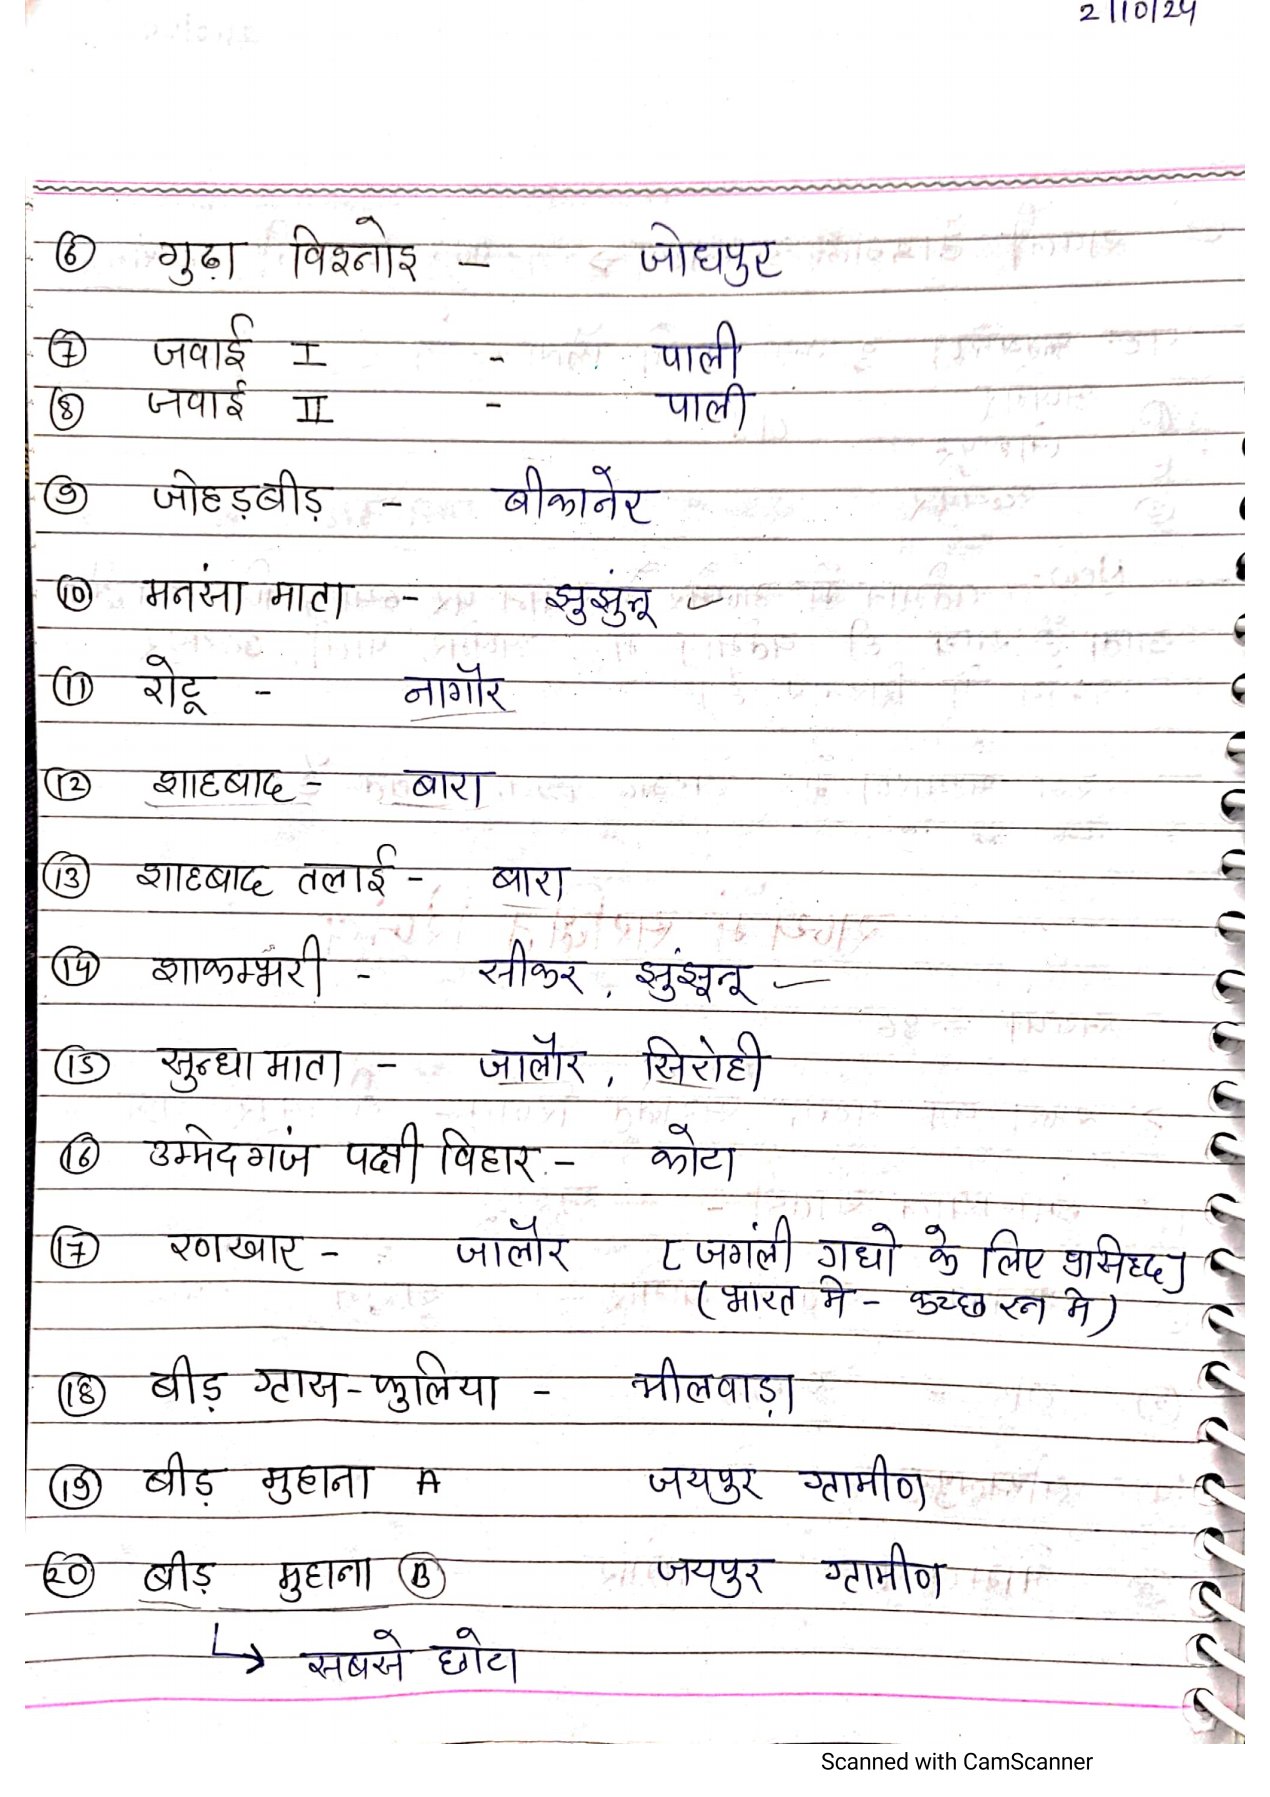 2/10/24
⑥ गुढ़ा विश्नोइ - जोधपुर
⑦ जवाई I - पाली
⑧ जवाई II - पाली
⑨ जोहड़बीड़ - बीकानेर
⑩ मनसंा माता - झुझुंनू
⑪ रोटू - नागौर
⑫ शाहबाद - बारा
⑬ शाहबाद तलाई - बारा
⑭ शाकम्भंरी - सीकर, झुंझूनू
⑮ सुन्धा माता - जालौर, सिरोही
⑯ उम्मेदगजं पक्षी विहार - कोटा
⑰ रणखार - जालौर [जगंली गधो के लिए प्रसिध्द]
(भारत मे - कच्छ रन मे)
⑱ बीड़ ग्रास-फुलिया - भीलवाड़ा
⑲ बीड़ मुहाना A जयपुर ग्रामीण
⑳ बीड़ मुहाना Ⓑ जयपुर ग्रामीण
↳ सबसे छोटा
Scanned with CamScanner